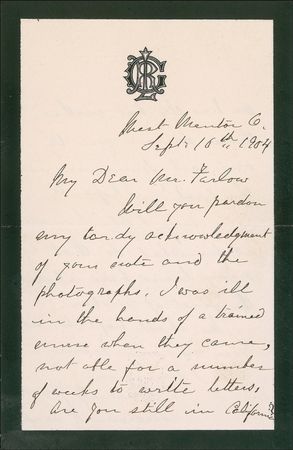 West Mentor O.
Sept 16th 1904
My Dear Mr. Farlow
Will you pardon
my tardy acknowledgment
of your note and the
photographs. I was ill
in the hands of a trained
nurse when they came,
not able for a number
of weeks to write letters.
Are you still in California?